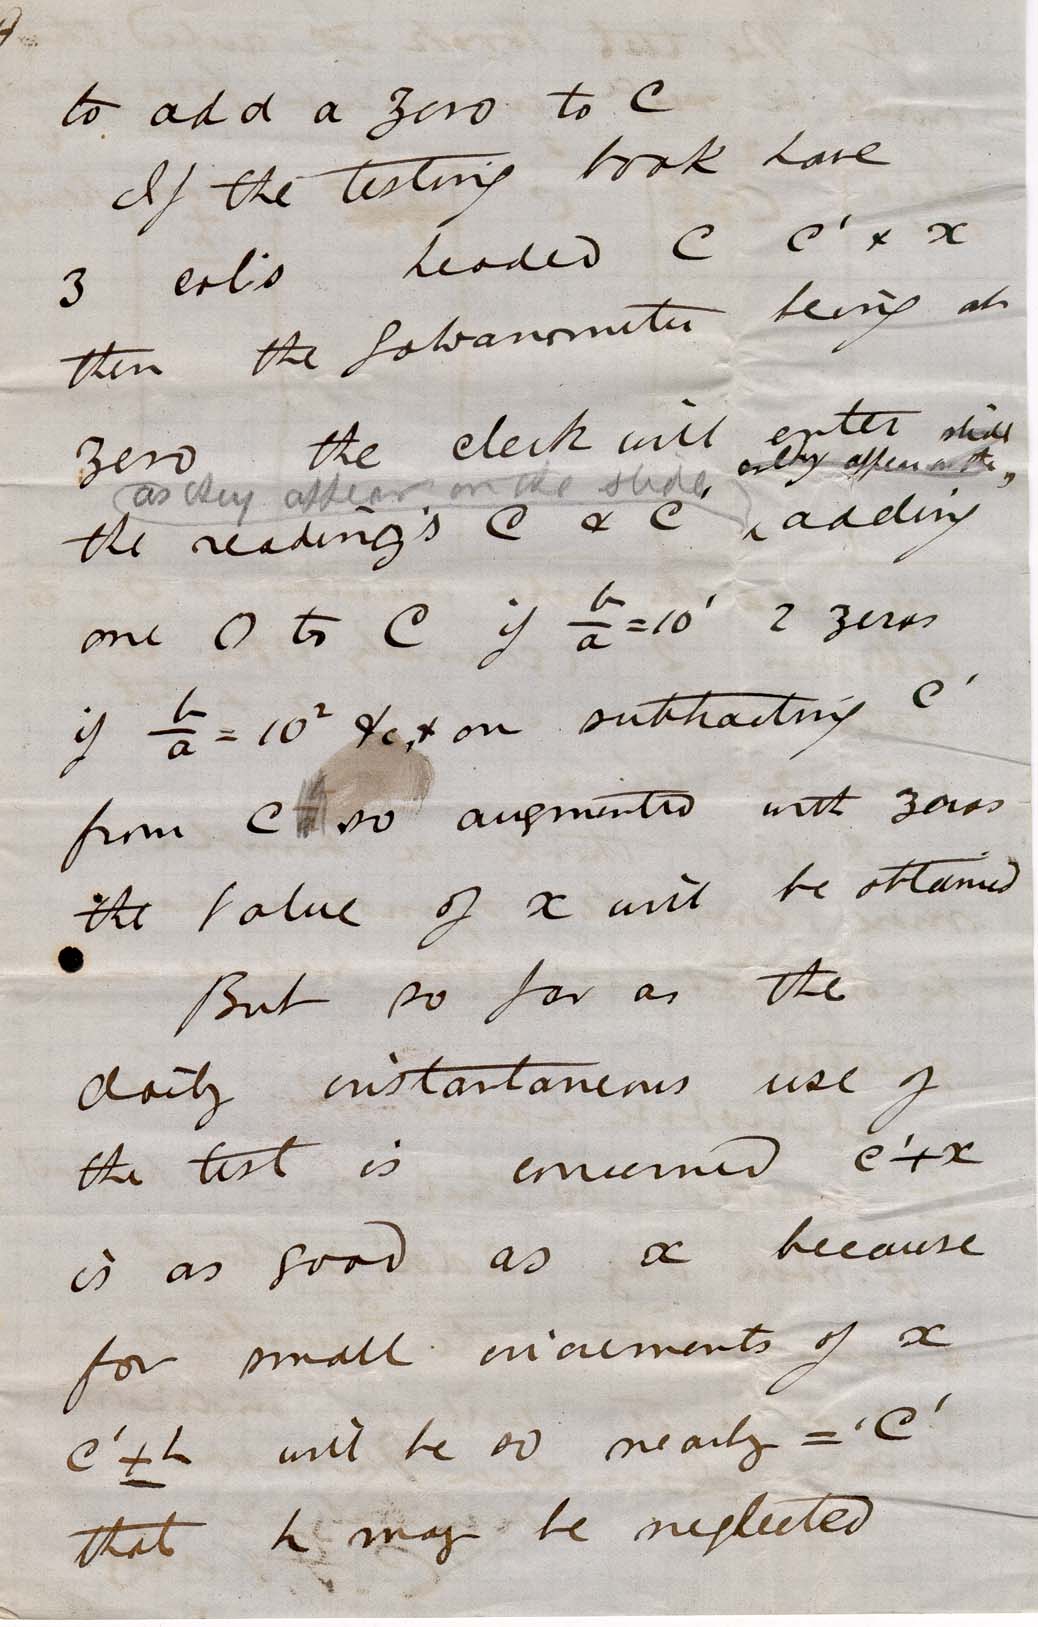 to add a zero to C
If the testing book have
3 col's headed C C' & x
then the Galvanometer being at
zero the clerk will enter slide
as they appear on the
as they appear on the slide
the reading's C & C' adding
one 0 to C if b/a = 10' 2 zeros
if b/a = 10² &c, & on subtracting C'
from C so augmented with zeros
the value of x will be obtained
But so far as the
daily instantaneous use of
the test is concerned C'+x
is as good as x because
for small increments of x
C' ± h will be so nearly = 'C'
that h may be neglected